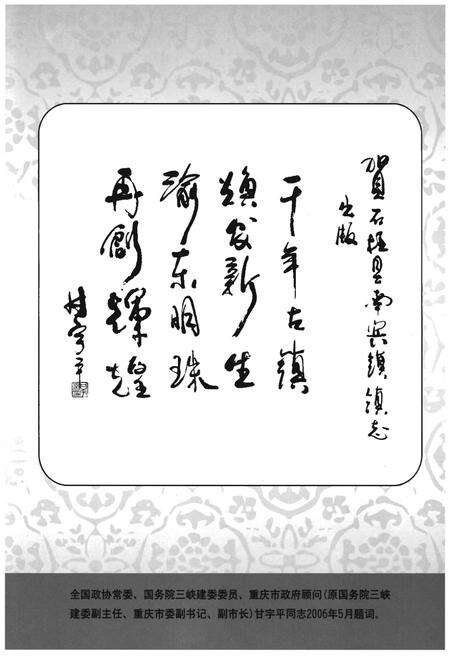 贺石柱县南宾镇镇志
出版
千年古镇
焕发新生
渝东明珠
再创辉煌
甘宇平
全国政协常委、国务院三峡建委委员、重庆市政府顾问(原国务院三峡
建委副主任、重庆市委副书记、副市长)甘宇平同志2006年5月题词。